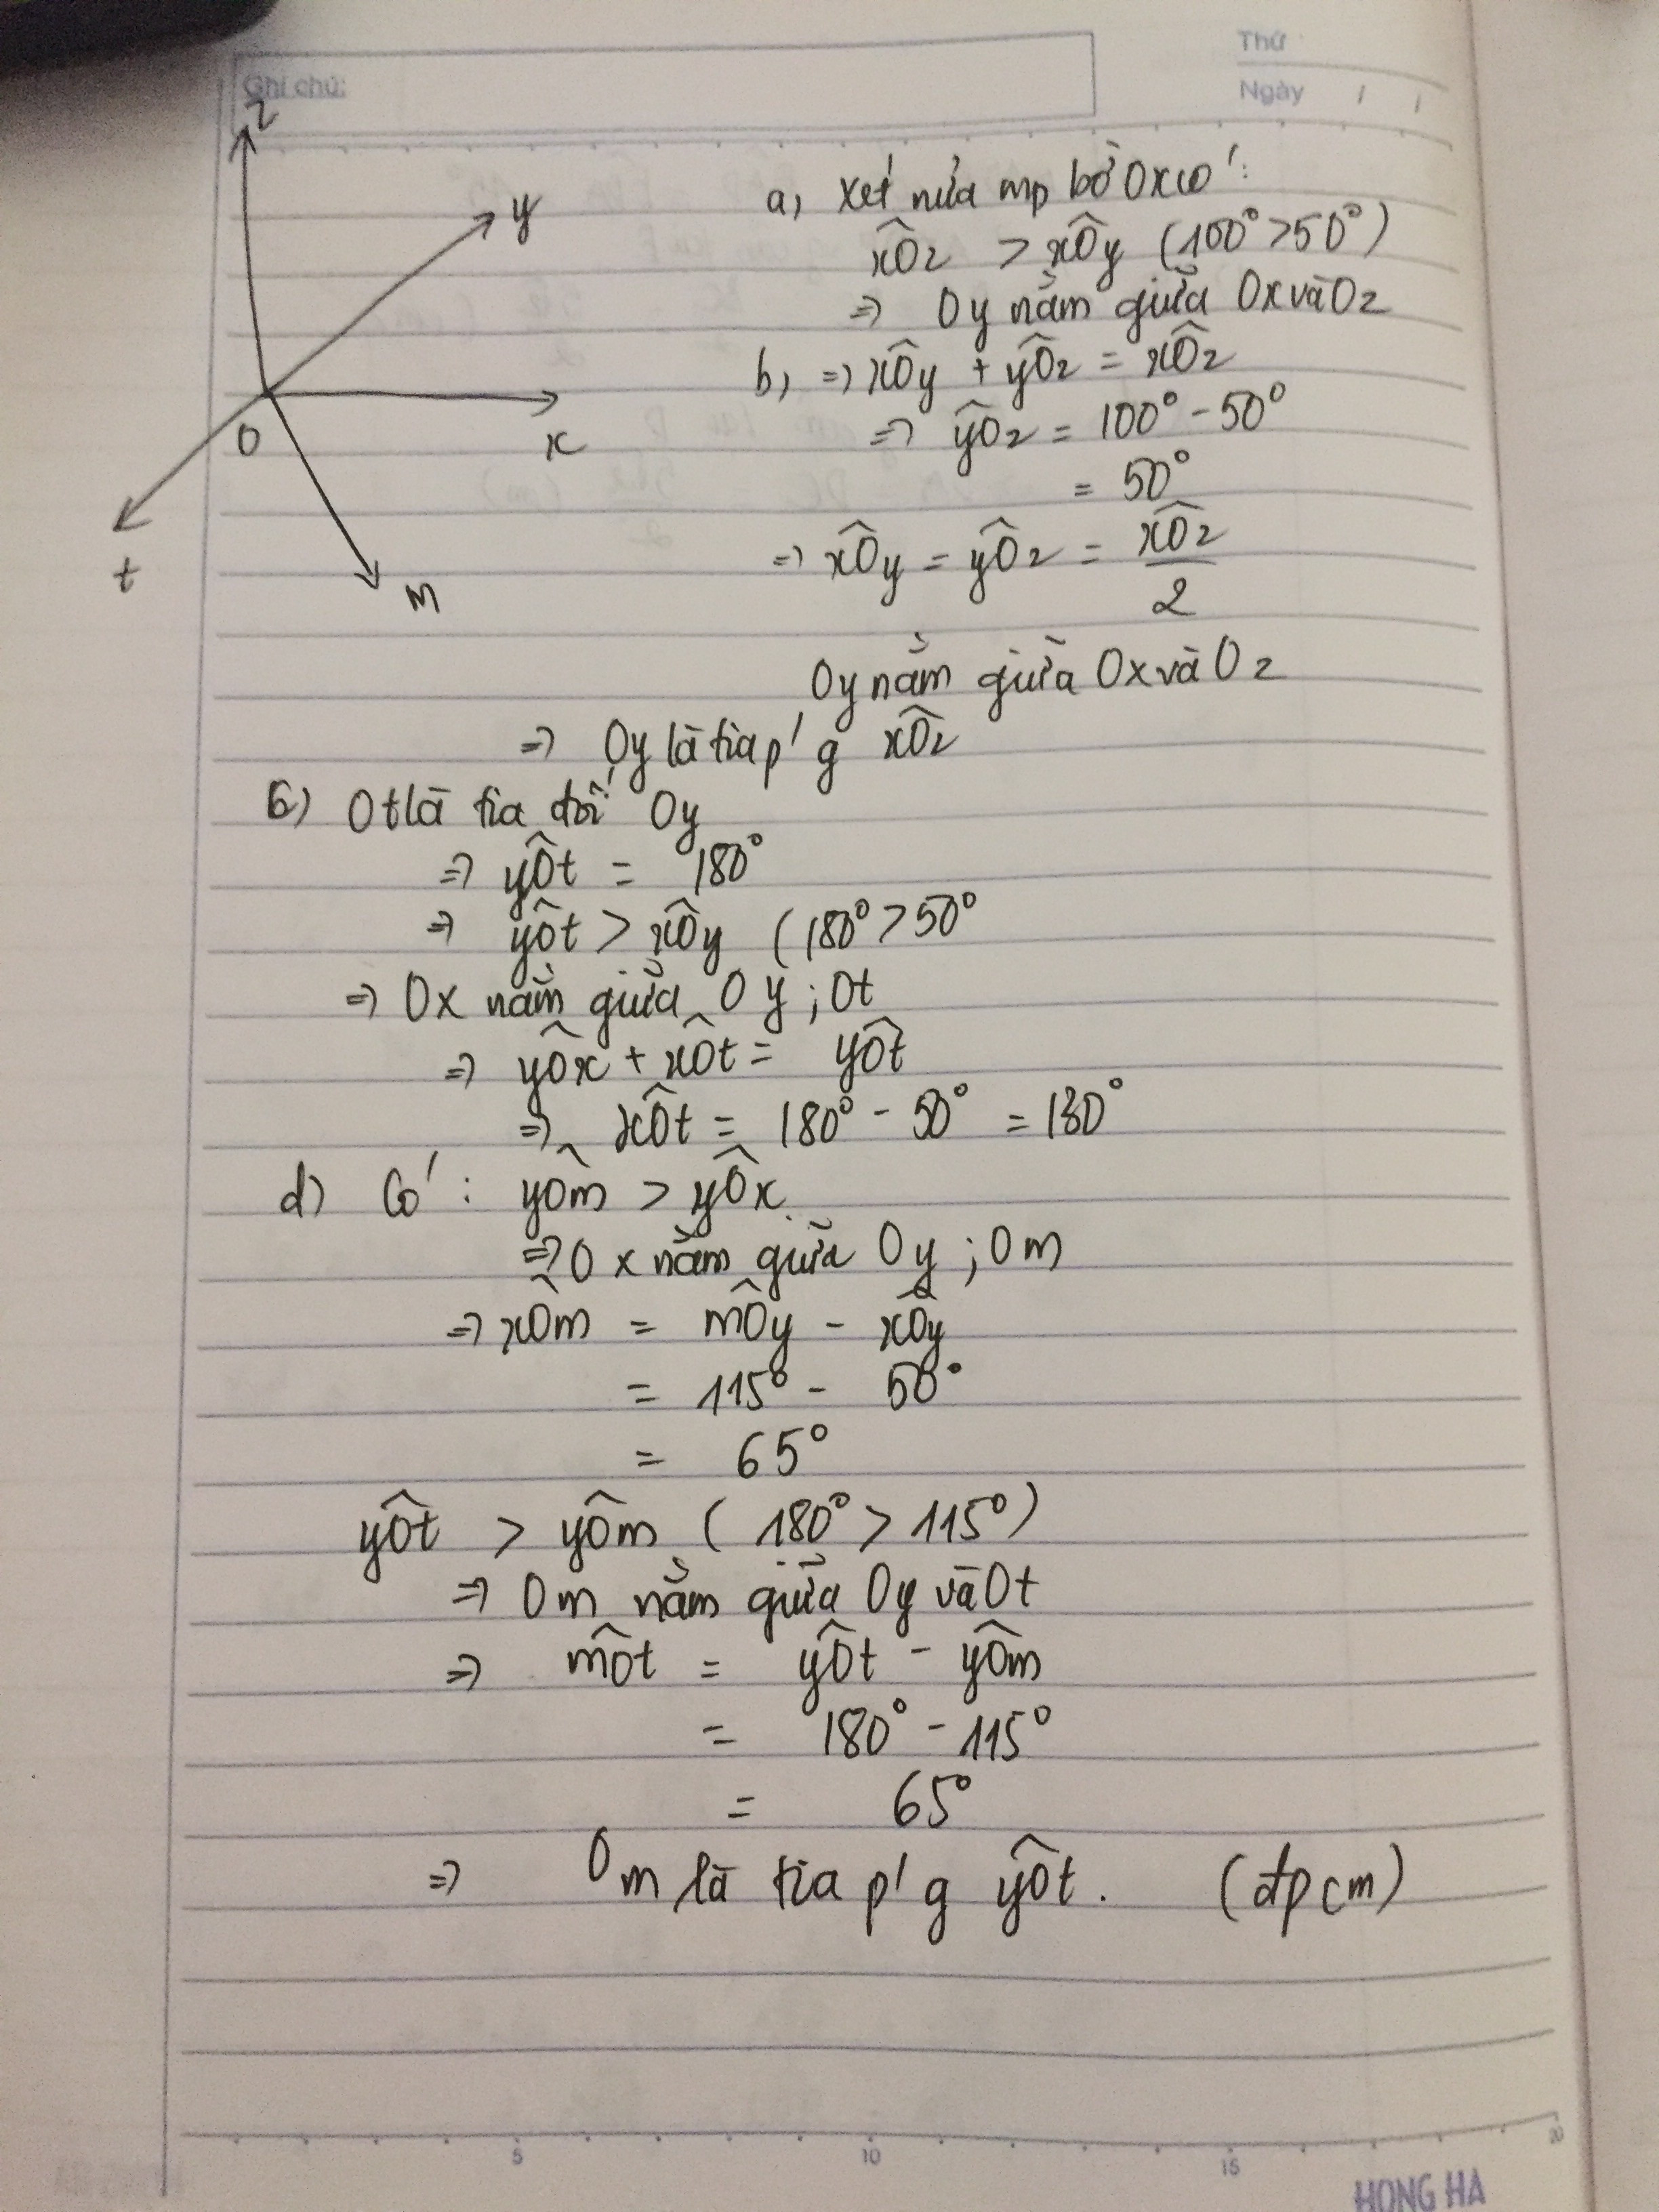 Thứ
Ghi chú:
Ngày / /
z
y
O
x
t
m
a) Xét nửa mp bờ Ox có:
xÔz > xÔy (100° > 50°)
=> Oy nằm giữa Ox và Oz
b) => xÔy + yÔz = xÔz
=> yÔz = 100° - 50°
= 50°
=> xÔy = yÔz = xÔz/2
Oy nằm giữa Ox và Oz
=> Oy là tia p'g xÔz
c) Ot là tia đối Oy
=> yÔt = 180°
=> yÔt > xÔy (180° > 50°
=> Ox nằm giữa Oy ; Ot
=> yÔx + xÔt = yÔt
=> xÔt = 180° - 50° = 130°
d) Có : yÔm > yÔx
=> Ox nằm giữa Oy ; Om
=> xÔm = mÔy - xÔy
= 115° - 50°
= 65°
yÔt > yÔm (180° > 115°)
=> Om nằm giữa Oy và Ot
=> mÔt = yÔt - yÔm
= 180° - 115°
= 65°
=> Om là tia p'g yÔt. (đpcm)
5 10 15 20
HONG HA